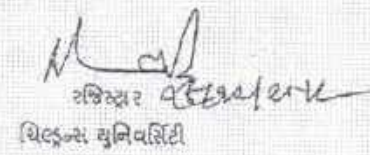 રજિસ્ટ્રાર
ચિલ્ડ્રન્સ યુનિવર્સિટી